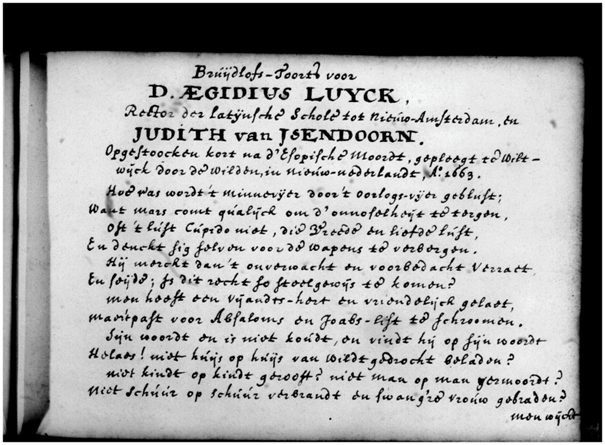 Bruijdlofs-Toorts voor
D. ÆGIDIUS LUYCK,
Rector der latijnsche Schole tot Nieuw-Amsterdam, en
JUDITH van ISENDOORN.
Opgestoocken kort na d'Esopische Moordt, gepleegt te Wilt-
wijck door de Wilden, in Nieuw-nederlandt, Aº 1663.
Hoe ras wordt 't minnevijer door 't oorlogs-vijer geblust;
Want mars comt qualijck om d'onnoselheijt te tergen,
Oft 't lust Cupido niet, die Vreede en liefde lust,
En denckt sig selven voor de wapens te verbergen.
Hij merckt dan 't onverwacht en voorbedacht verraet
En seijde; Is dit recht so steelgewijs te komen?
men heeft een vijandts-hert en vriendelijck gelaet,
maer past voor Absaloms en Joabs-list te schroomen.
Sijn woordt en is niet koudt, en vindt hij op sijn woordt
Helaes! niet huijs op huijs van Wildt gedrocht beladen?
niet kindt op kindt gerooft? niet man op man vermoordt?
Niet Schuur op schuur verbrandt en swang're vrouw gebraden?
men wijckt